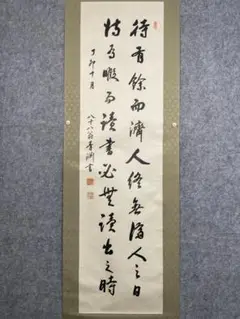 待有餘而濟人終無濟人之日
待有暇而讀書必無讀書之時
丁卯十月
八十八翁 書